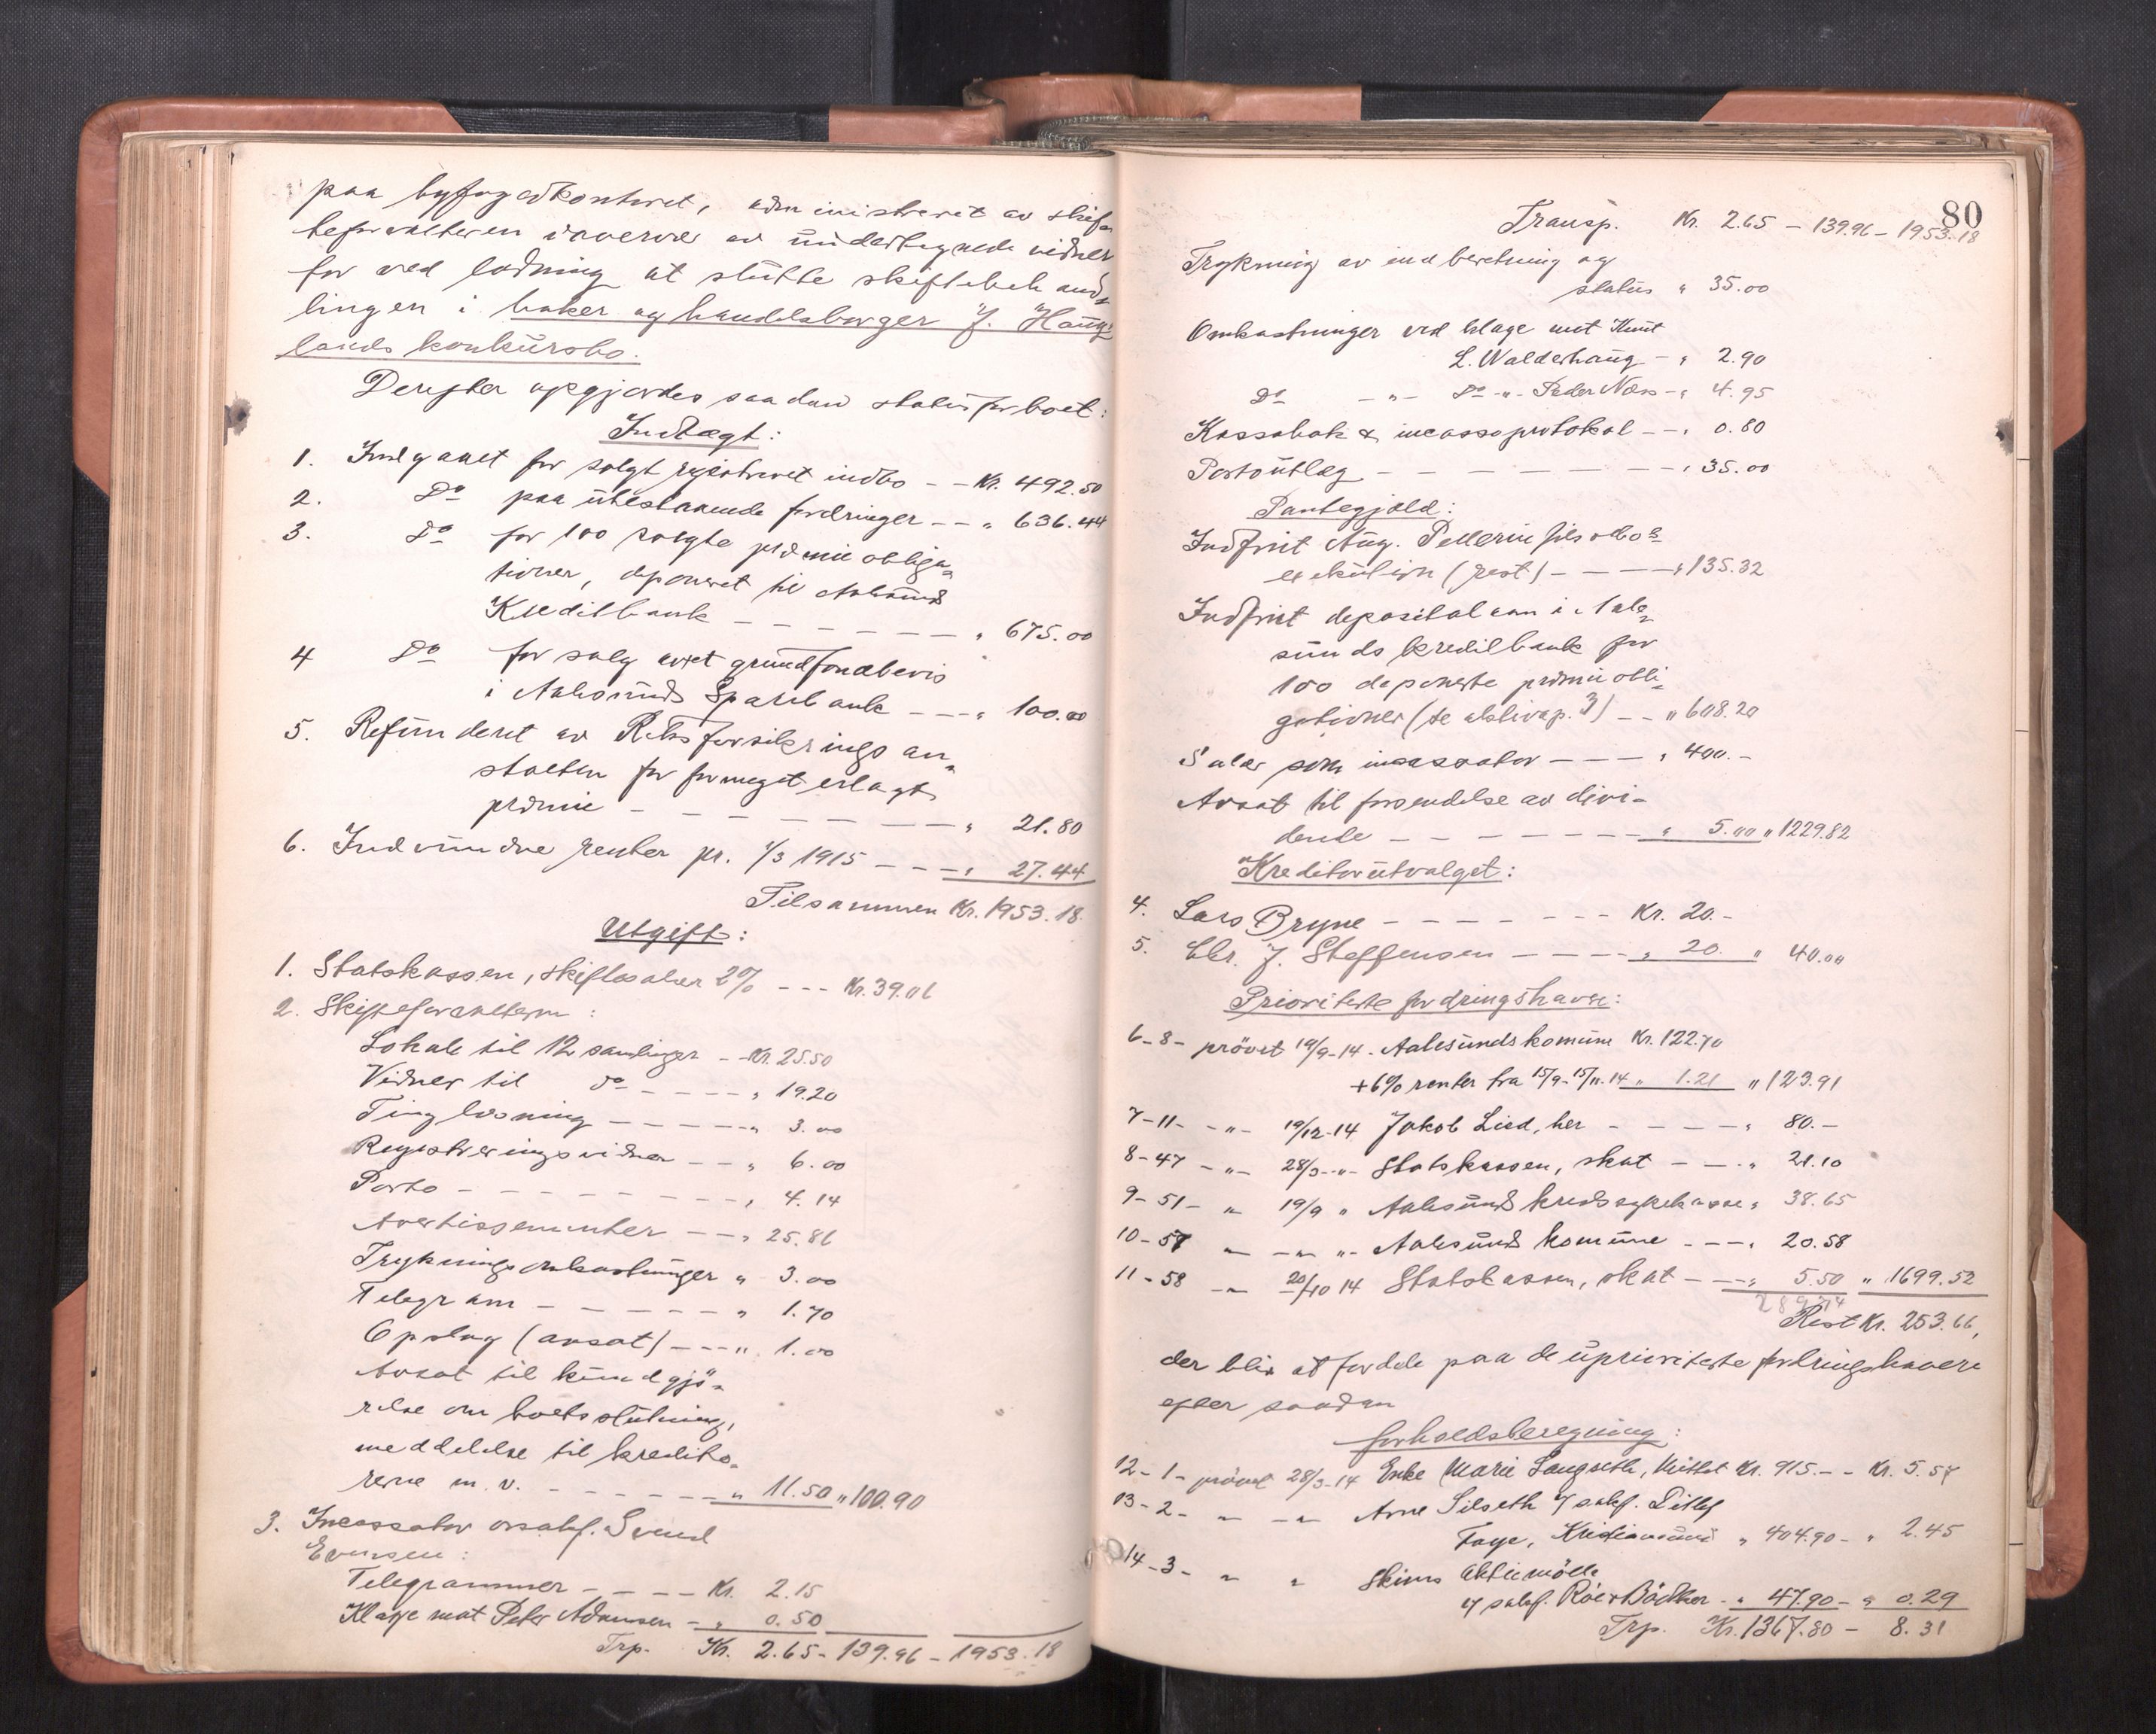 paa byfogedkontoret, administreret av skif-
teforvalteren i nærvær av undertegnede vidner
for ved lodning at slutte skiftebehand-
lingen i baker og handelsborger J. Haug-
lands konkursbo.
Derefter opgjordes saadan status for boet:
Indtægt:
1. Indgaaet for solgt registreret indbo - - Kr. 492.50
2. Do paa utestaaende fordringer - - " 636.44
3. Do for 100 solgte præmieobliga-
tioner, deponeret til Aalesunds
Kreditbank - - - - - - " 675.00
4 Do for salg av et grundfondsbevis
i Aalesunds Sparebank - - - " 100.00
5. Refunderet av Riksforsikringsan-
stalten for formeget erlagt
præmie - - - - - - - " 21.80
6. Indvundne renter pr. 1/3 1915 - - - " 27.44
Tilsammen Kr. 1953.18
Utgift:
1. Statskassen, skiftesalær 2% - - - Kr. 39.06
2. Skifteforvalteren:
Lokale til 12 samlinger - - Kr. 25.50
Vidner til do - - - - " 19.20
Tinglæsning - - - - - " 3.00
Registreringsvidner - - " 6.00
Porto - - - - - - - - " 4.14
Avertissementer - - " 25.86
Trykningsomkostninger " 3.00
Telegram - - - - - - " 1.70
Opslag (avsat) - - - " 1.00
Avsat til kundgjö-
relse om boets slutning,
meddelelse til kredito-
rerne m. v. - - - - - - " 11.50 " 100.90
3. Incassator orsakf. Svend
Evensen:
Telegrammer - - - - Kr. 2.15
Klage mot Peter Adamsen - " 0.50
Trp. Kr. 2.65 - 139.96 - 1953.18
80
Transp. Kr. 2.65 - 139.96 - 1953.18
Trykning av indberetning og
status " 35.00
Omkostninger ved klage mot Knut
L. Walderhaug - " 2.90
Do - " - Do - " - Peder Næss - " 4.95
Kassabok & incassoprotokol - - " 0.80
Portoutlæg - - - - - - - " 35.00
Pantegjæld:
Indfriet Aug. Pellerin fils & Co s
exekution (rest) - - - - " 135.32
Indfriet depositalaan i Aale-
sunds kreditbank for
100 deponerte præmieobli-
gationer (se aktiva p. 3) - - " 608.20
Salær som incassator - - - " 400.-
Avsat til forsendelse av divi-
dende - - - - - - - " 5.00 " 1229.82
Kreditorutvalget:
4. Lars Bryne - - - - - - - Kr. 20.-
5. Chr. J. Steffensen - - - - " 20. " 40.00
Prioriterte fordringshavere:
6-8- prövet 19/9-14 - Aalesunds komune Kr. 122.70
+6% renter fra 15/9-15/11.14 " 1.21 " 123.91
7-11- - " - 19/12-14 Jakob Lied, her - - - - - " 80.-
8-47 - " - 28/3 - " - Statskassen, skat - - - " 21.10
9-51- " 19/9 " Aalesund kredssykekasse " 38.65
10-57 " - " " - Aalesund komune - - - " 20.58
11-58 - " 20/10 14 Statskassen, skat - - - " 5.50 " 1699.52
289.74
Rest Kr. 253.66,
der blir at fordele paa de uprioriterte fordringshavere
efter saadan
forholdsberegning:
12-1- prövet 28/3-14 Enke Marie Langseth, Mittet Kr. 915.- - Kr. 5.57
13-2- " - " Arne Silseth v/ sakf. Ditlef
Faye, Kristiansund " 404.90 - " 2.45
14-3- " " Skiens aktiemölle
v/ sakf. Roe & Bödtker - " 47.90 - " 0.29
Trp. Kr. 1367.80 - 8.31